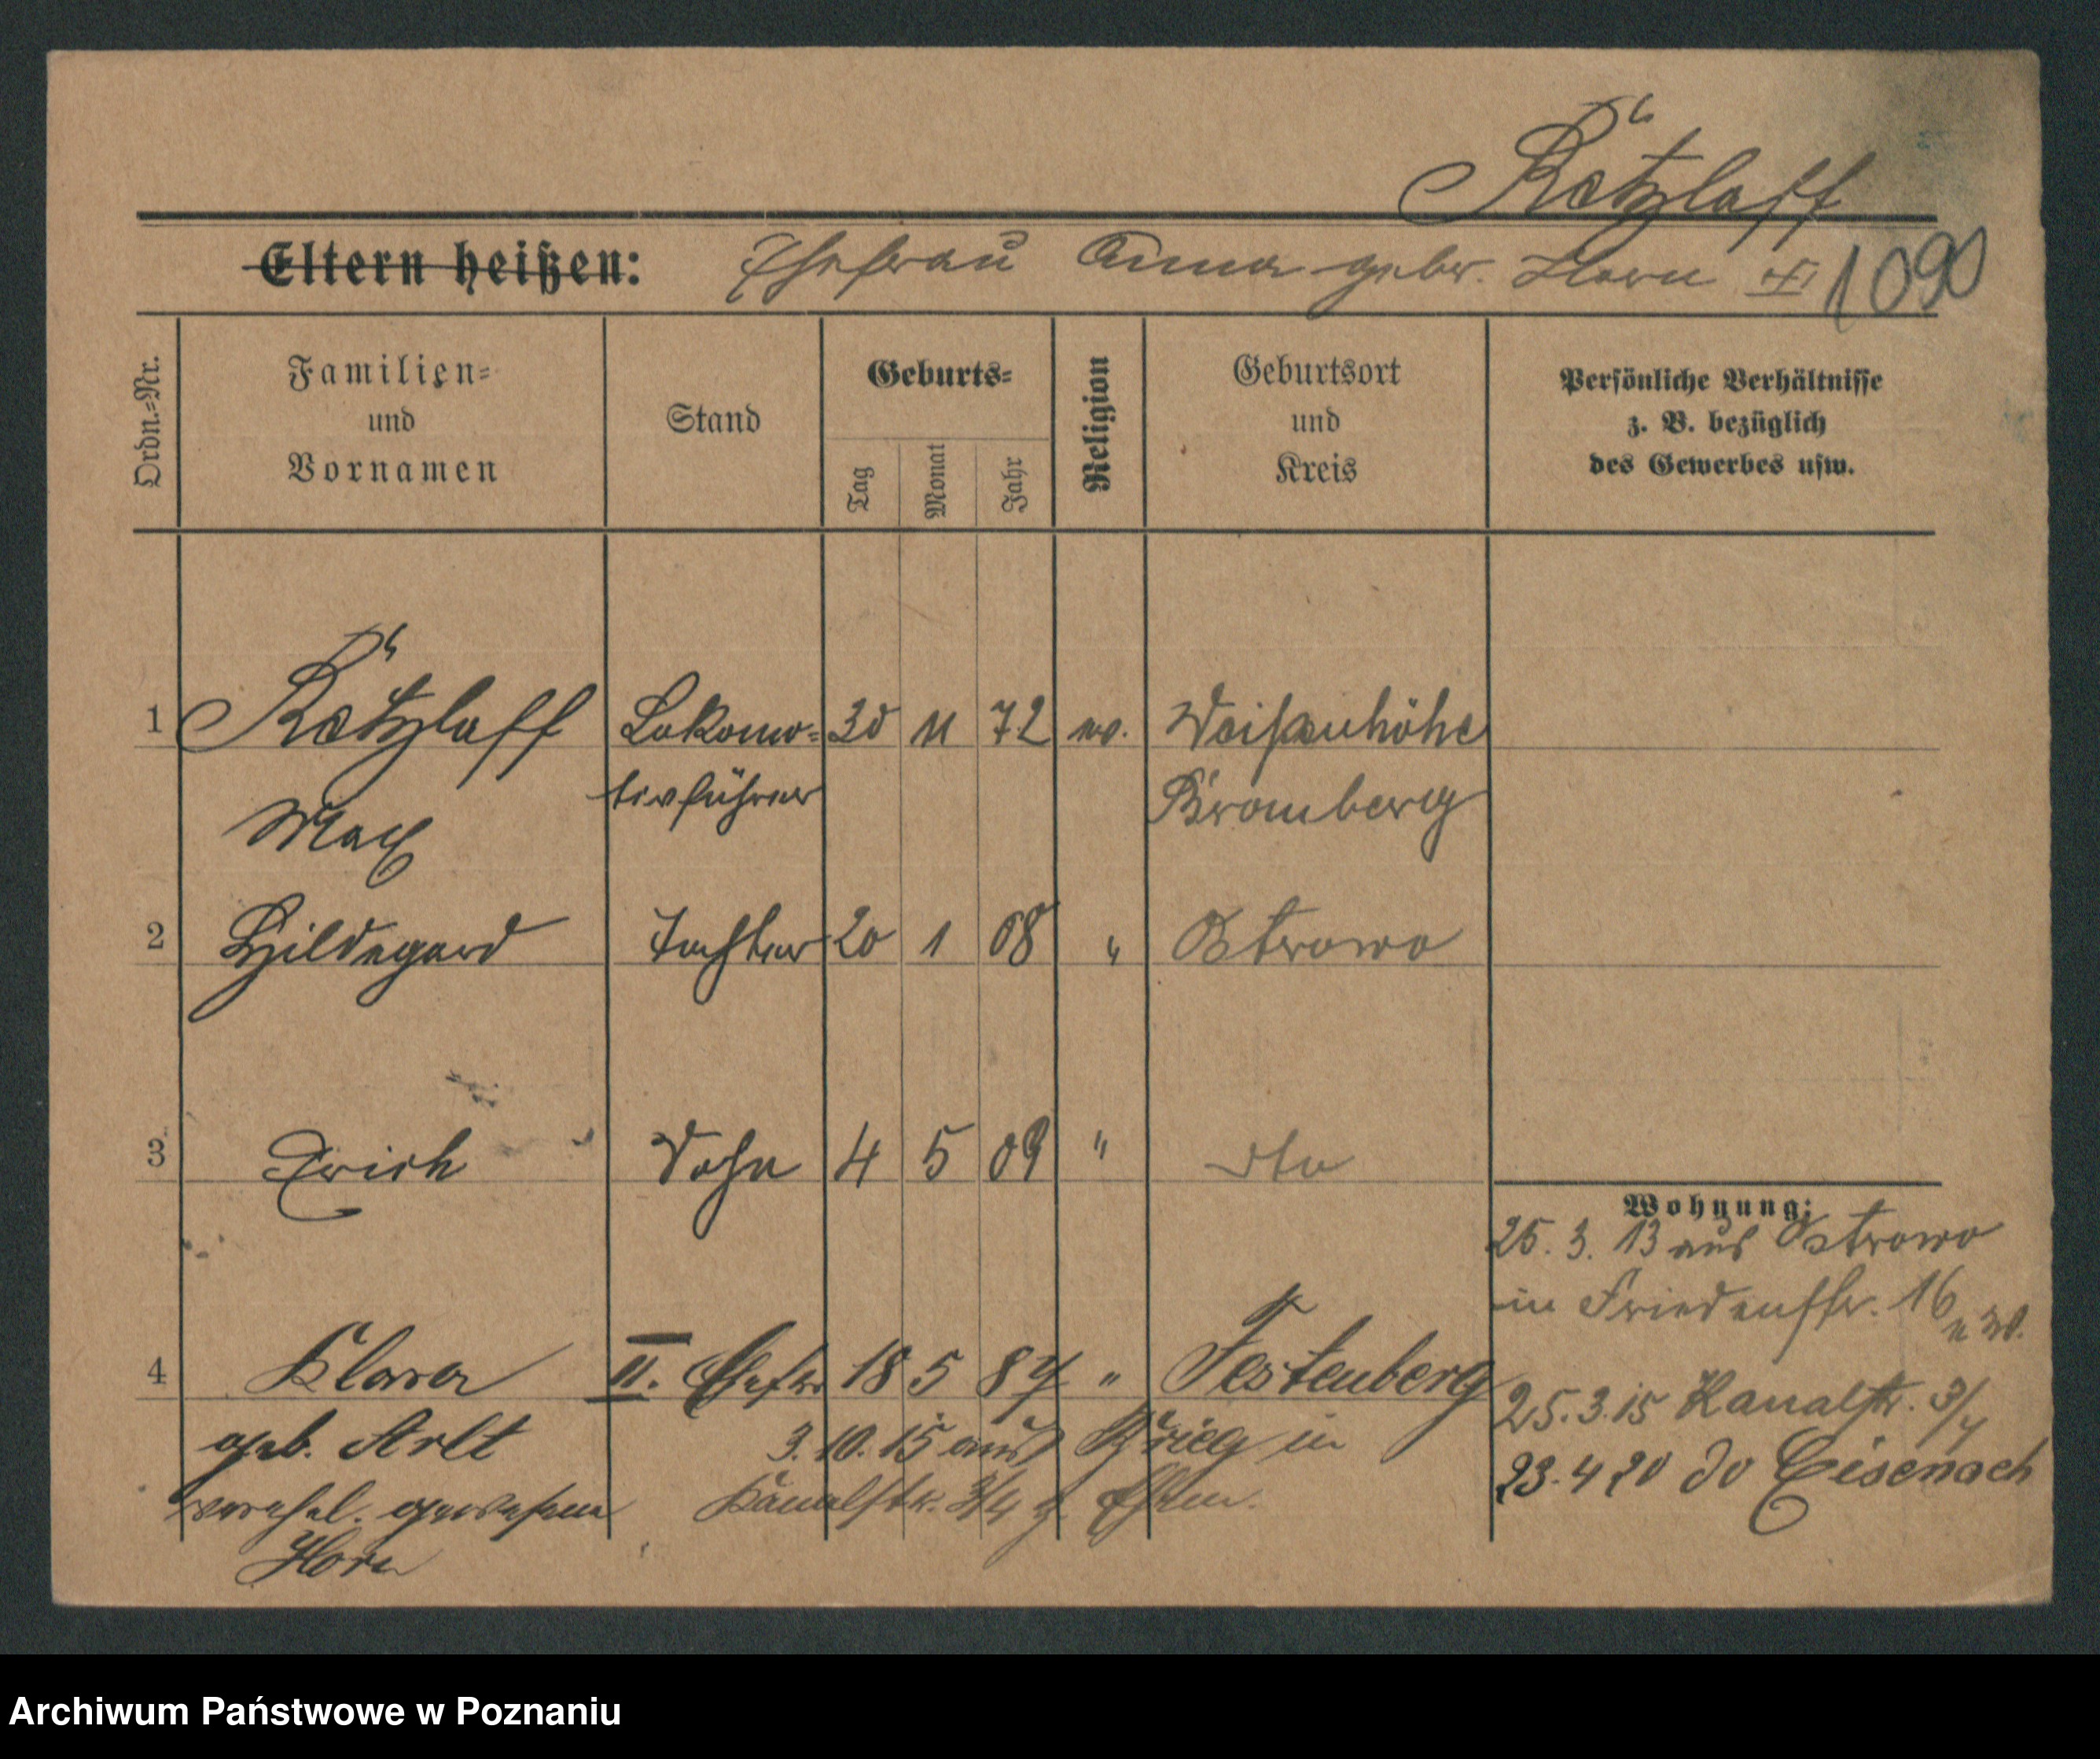 Retzlaff
Eltern heißen: Ehefrau Anna gebor. Horn
1090
Ordn.=Nr.
Familien=
und
Vornamen
Stand
Geburts=
Tag
Monat
Jahr
Religion
Geburtsort
und
Kreis
Persönliche Verhältnisse
z. B. bezüglich
des Gewerbes usw.
1 Retzlaff Lokomo= 30 11 72 ev. Weißenhöhe
Max tivführer Bromberg
2 Hildegard Tochter 20 1 08 " Ostrowo
3 Erich Sohn 4 5 09 " dto
Wohnung:
25. 3. 13 aus Ostrowo
in Friedenstr. 16
4 Klara II. Ehefr 18 5 87 " Festenberg
25.3.15 Kanalstr. 3/4
geb. Arlt 3.10.15 aus Brieg in
23.4 20 do Eisenach
verehel. gewesene Kanalstr. 3/4 z. Ehem.
Horn
Archiwum Państwowe w Poznaniu